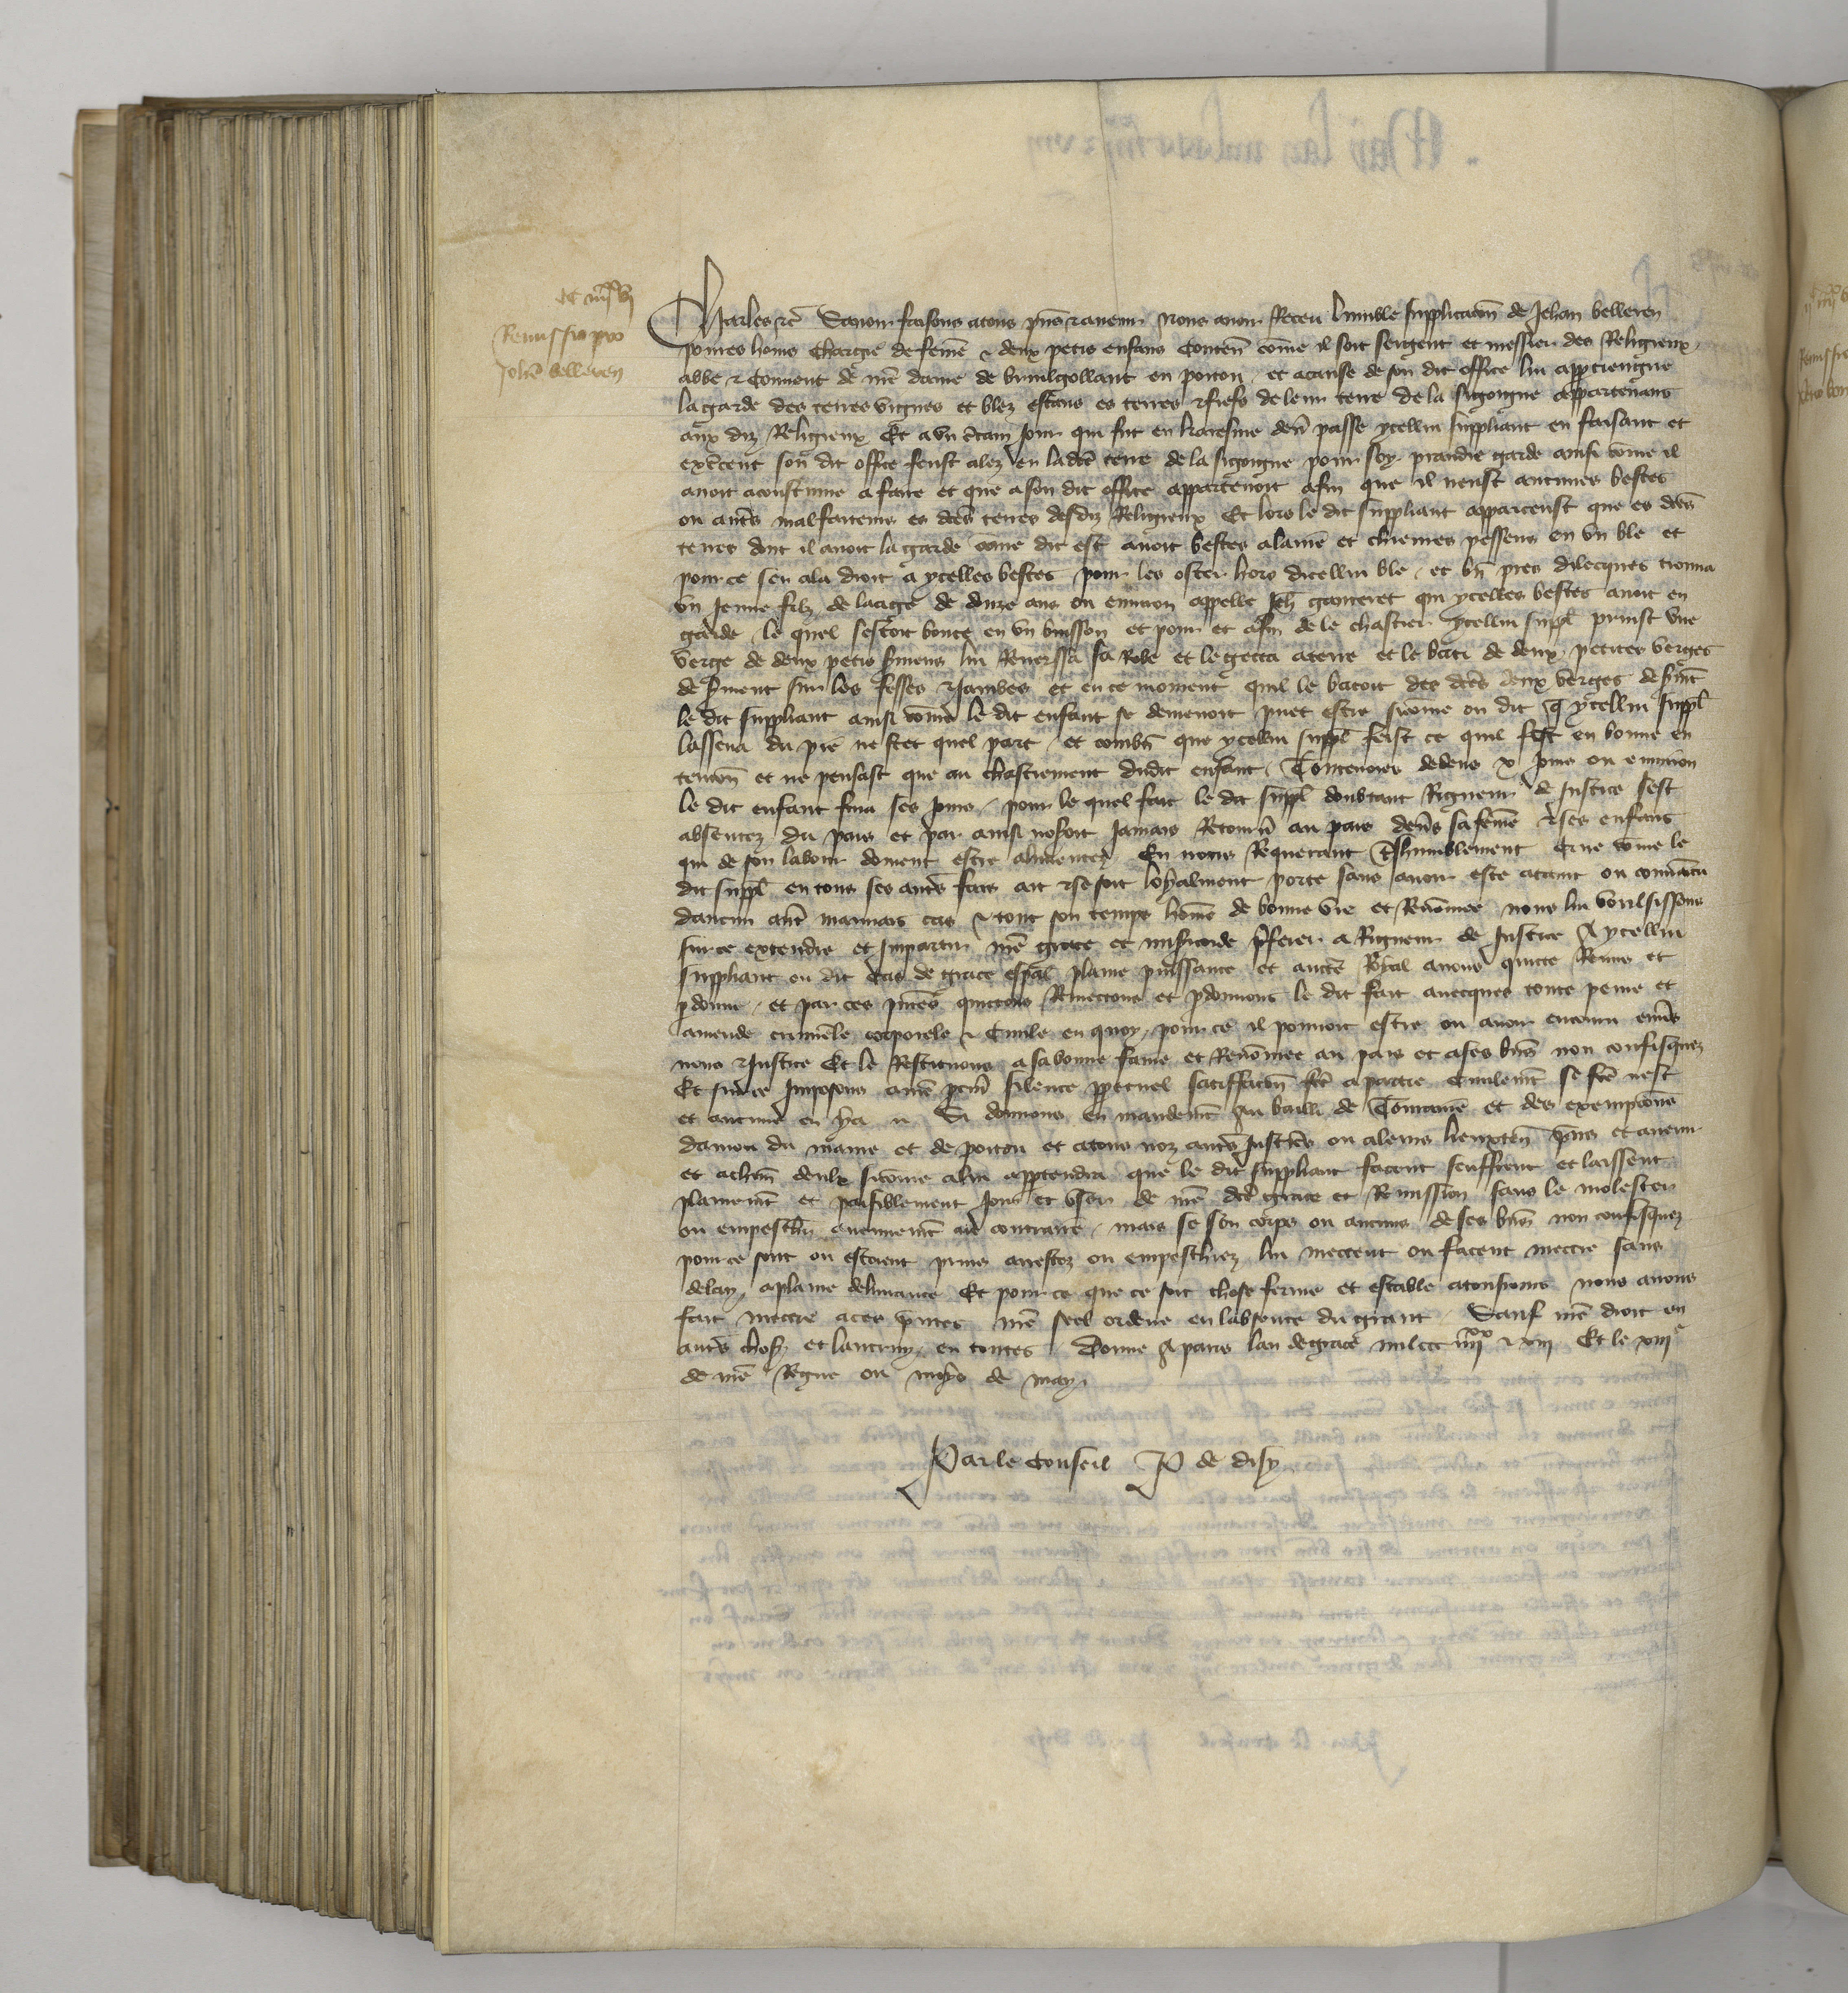 Remissio pro
Johe belleren
Charles etc Savoir faisons a tous pñs et avenir Nous avoir Receu lumble supplicacoñ de Jehan belleren
povres homs chargie de feme & deux petis enfans Conteñ cõme il soit sergent et messier des Religieux
abbe & Convent de nre dame de en poitou et a cause de son dit office lui appartiengne
la garde des terres vignes et blez estans es terres & fiefs de leur terre de la sigoigne appartenans
aux diz Religieux Et a un certain jour qui fut en karesme deñ passe ycellui suppliant en faisant et
exercent son dit office feust alez en ladcte terre de la sigoigne pour soy prandre garde ainsi cõme il
avoit acoustume a faire et que a son dit office appartenoit afin que il neust aucunes bestes
ou autres malfaiteurs es dctes terres desdiz Religieux Et lors le dit suppliant apparceust que es dctes
terres dont il avoit la garde cõme dit est avoit bestes alaine et chievres pessens en un ble et
pour ce sen ala droit a ycelles bestes pour les oster hors dicellui ble et bñ pres dilecques trouva
un jeune filz de laage de douze ans ou environ appelle Jeh ganteret qui ycelles bestes avoit en
garde le quel sestoit boute en un buisson et pour et afin de le chastier ycellui suppl prinst une
verge de deux petis sermens lui Reversa sa Robe et le getta a terre et le bati de deux petites verges
de serment sur les fesses & jambes et en ce moment quil le batoit des dctes deux verges de sermt
le dit suppliant ainsi cõme le dit enfant se demenoit puet estre sicõme on dit q ycellui suppl
lassena du pie ne scet quel part et combñ que ycellui suppl feist ce quil fist en bonne en
tencoñ et ne pensast que au chastiement dudit enfant Toutevoies dedens x jours ou environ
le dit enfant fina ses jours pour le quel fait le dit suppl doubtant Rigueur de justice sest
absentez du pais et par ainsi nosoit jamais Retourñ au pais devs sa feme & ses enfans
qui de son labour doivent estre alimentez En nous Requerant treshumblement que cõme le
dit suppl en tous ses autres fais ait & se soit loyalment porte sans avoir este ataint ou convaicu
daucun autre mauvais cas & tout son temps home de bonne vie et Renõmee nous lui voulsissions
sur ce extendre et impartir nre grace et misericorde preferer a Rigueur de justice A ycellui
suppliant ou dit cas de grace espal plaine puissance et aucte Royal avons quicte Remis et
pdonne et par ces pntes quictons Remectons et pdonnons le dit fait avecques toute peine et
amende criminele corporele & Civile en quoy pour ce il pourroit estre ou avoir encouru envs
nous & justice Et le Restituons a sa bonne fame et Renõmee au pais et a ses bñs non confisquez
Et sur ce imposons a nre pcur silence ppetuel satisfacoñ fcte a partie civilemt se fcte nest
et aucune en ya Si donnons en mandemt au bailli de Touraine et des exempcions
danjou du maine et de poitou et a tous noz autres justicrs ou a leurs lieuxteñ pns et avenir
et a chm deulx sicõme a lui apptendra que le dit suppliant facent seuffrent et laissent
plainemt et paisiblement joir et user de nre dcte grace et Remission sans le molester
ou empeschier aucunemt au contraire mais se son corps ou aucuns de ses bñs non confisquez
pour ce sont ou estoient prins arrestez ou empeschiez lui mectent ou facent mectre sans
delay a plaine delivrance Et pour ce que ce soit chose ferme et estable a tousjours nous avons
fait mectre a ces pntes nre seel ordene en labsence du grant Sauf nre droit en
autres choses et lautruy en toutes Donne A paris lan de grace mil ccc iiijxx & xiij Et le xiije
de nre Regne ou moys de may
Par le Conseil P de disy